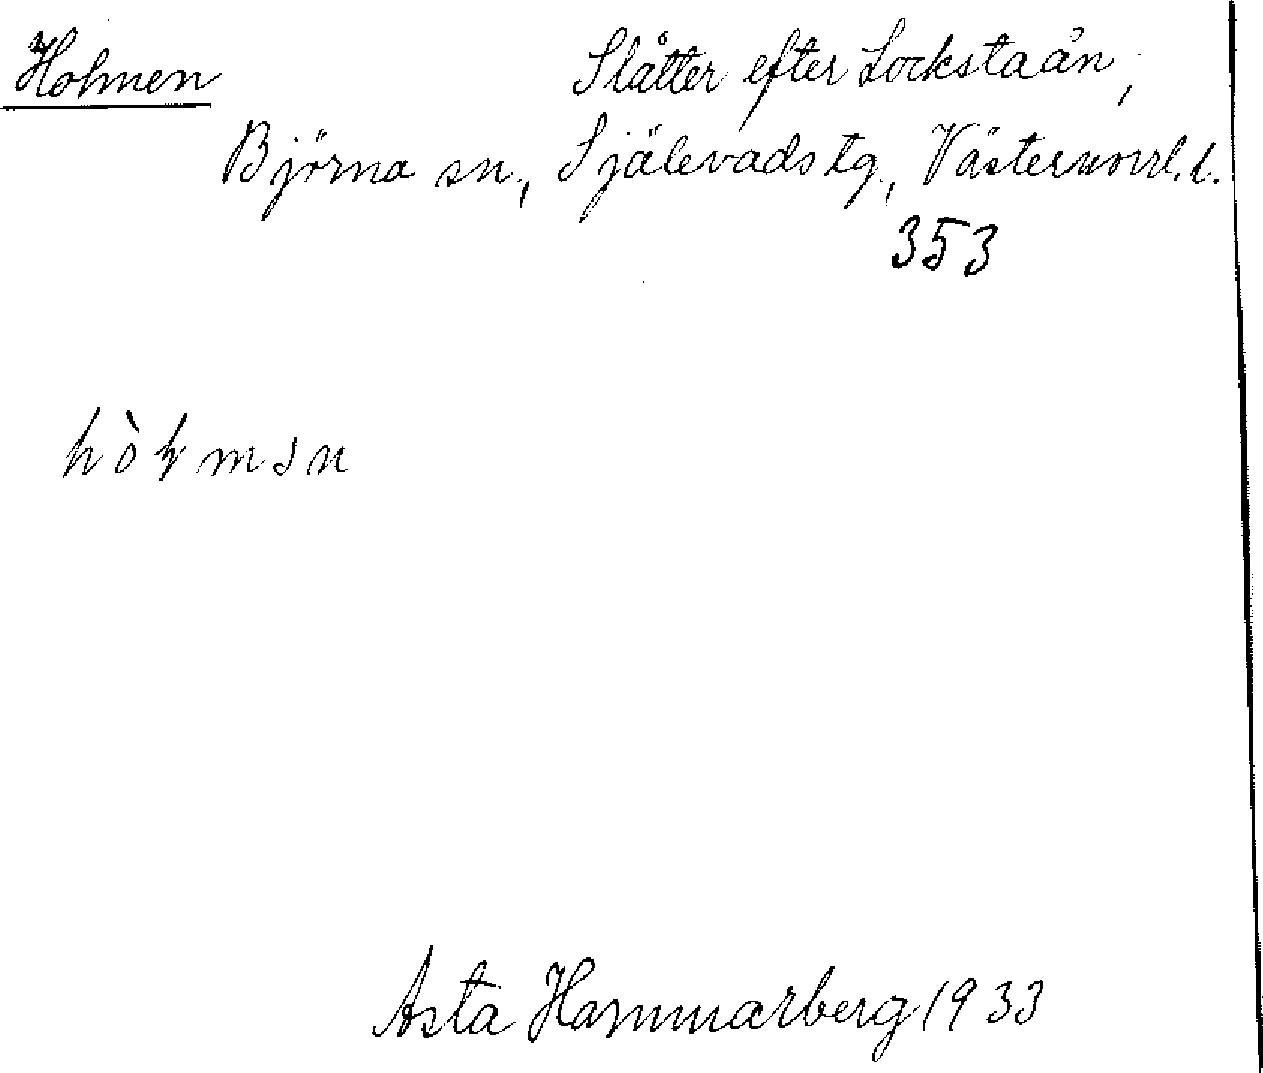 Holmen Slåtter efter Lockstaån,
Björna sn, Själevads tg, Västernorrl. l.
353
Asta Hammarberg 1933